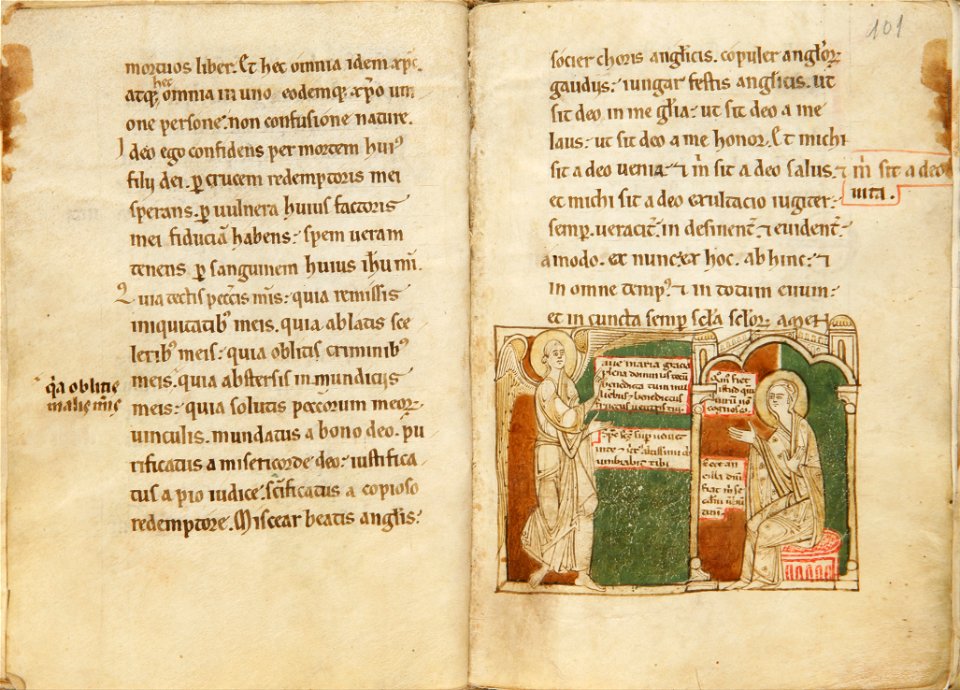 mortuos liber. Et hec omnia idem xp̄c.
atq; hec omnia in uno eodemq; xp̄o um
one persone. non confusione nature.
Ideo ego confidens per mortem hui⁹
filij dei. ꝑ crucem redemptoris mei
sperans. ꝑ uulnera huius factoris
mei fiduciā habens. spem ueram
tenens ꝑ sanguinem huius ihū mī.
Quia tectis peccīs mīs. quia remissis
iniquitatib⁹ meis. quia ablatis sce
lerib⁹ meis. quia oblitis criminib⁹
q̄a oblitis
malis mīs
meis. quia abstersis inmundicijs
meis. quia solutis peccorum meoꝝ
uinculis. mundatus a bono deo. pu
rificatus a misericorde deo. iustifica
tus a pio iudice. scīficatus a copioso
redemptore. Miscear beatis anglis.
101
socier choris anglicis. copuler angloꝝ
gaudijs. iungar festis anglicis. ut
sit deo in me glīa. ut sit deo a me
laus. ut sit deo a me honor. Et michi
sit a deo uenia. ⁊ m̄ sit a deo salus. ⁊ m̄ sit a deo
uita.
et michi sit a deo exultacio iugiter.
semꝑ. ueracit̄. in definent̄. ⁊ euident̄.
amodo. et nunc. ex hoc. ab hinc. ⁊
in omne temp⁹. ⁊ in totum euum.
et in cuncta semꝑ scl̄a scloꝝ amen
aue maria gracia
plena dominus tecū
benedicta tu in mu
lieribus. benedictus
fructus uentris tui.
sp̄c sc̄s suꝑ ueniet
in te ⁊ uirt⁹ altissimi ob
umbrabit tibi
Qm̄ fiet
istud qm̄
uirū nō
cognosco
Ecce an
cilla dn̄i
fiat m̄ se
cdm̄ uerbū
tuum.